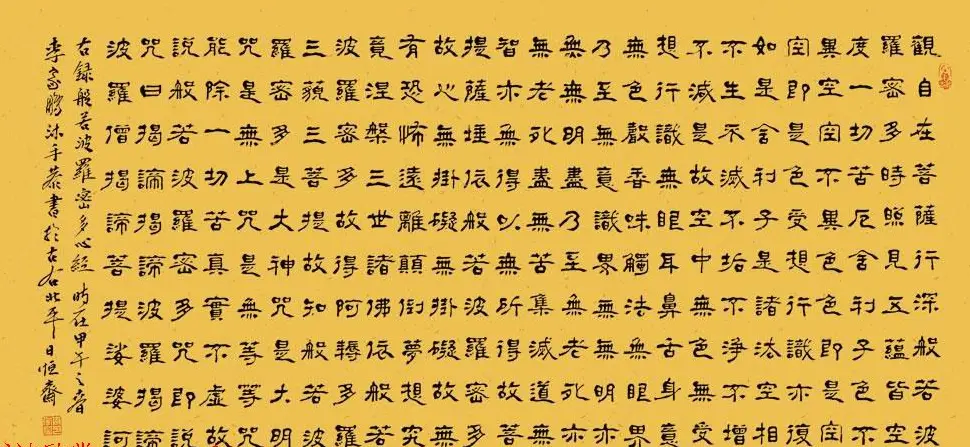 觀自在菩薩行深般若波
羅密多時照見五蘊皆空
度一切苦厄舍利子色不
異空空不異色色即是空
空即是色受想行識亦復
如是舍利子是諸法空相
不生不滅不垢不淨不增
不滅是故空中無色無受
想行識無眼耳鼻舌身意
無色聲香味觸法無眼界
乃至無意識界無無明亦
無無明盡乃至無老死亦
無老死盡無苦集滅道無
智亦無得以無所得故菩
提薩埵依般若波羅密多
故心無掛礙無掛礙故無
有恐怖遠離顛倒夢想究
竟涅槃三世諸佛依般若
波羅密多故得阿耨多羅
三藐三菩提故知般若波
羅密多是大神咒是大明
咒是無上咒是無等等咒
能除一切苦真實不虛故
說般若波羅密多咒即說
咒曰揭諦揭諦波羅揭諦
波羅僧揭諦菩提娑婆訶
右錄般若波羅密多心經 時在甲午之春
李家鵬沐手恭書於古右北平日恒齋